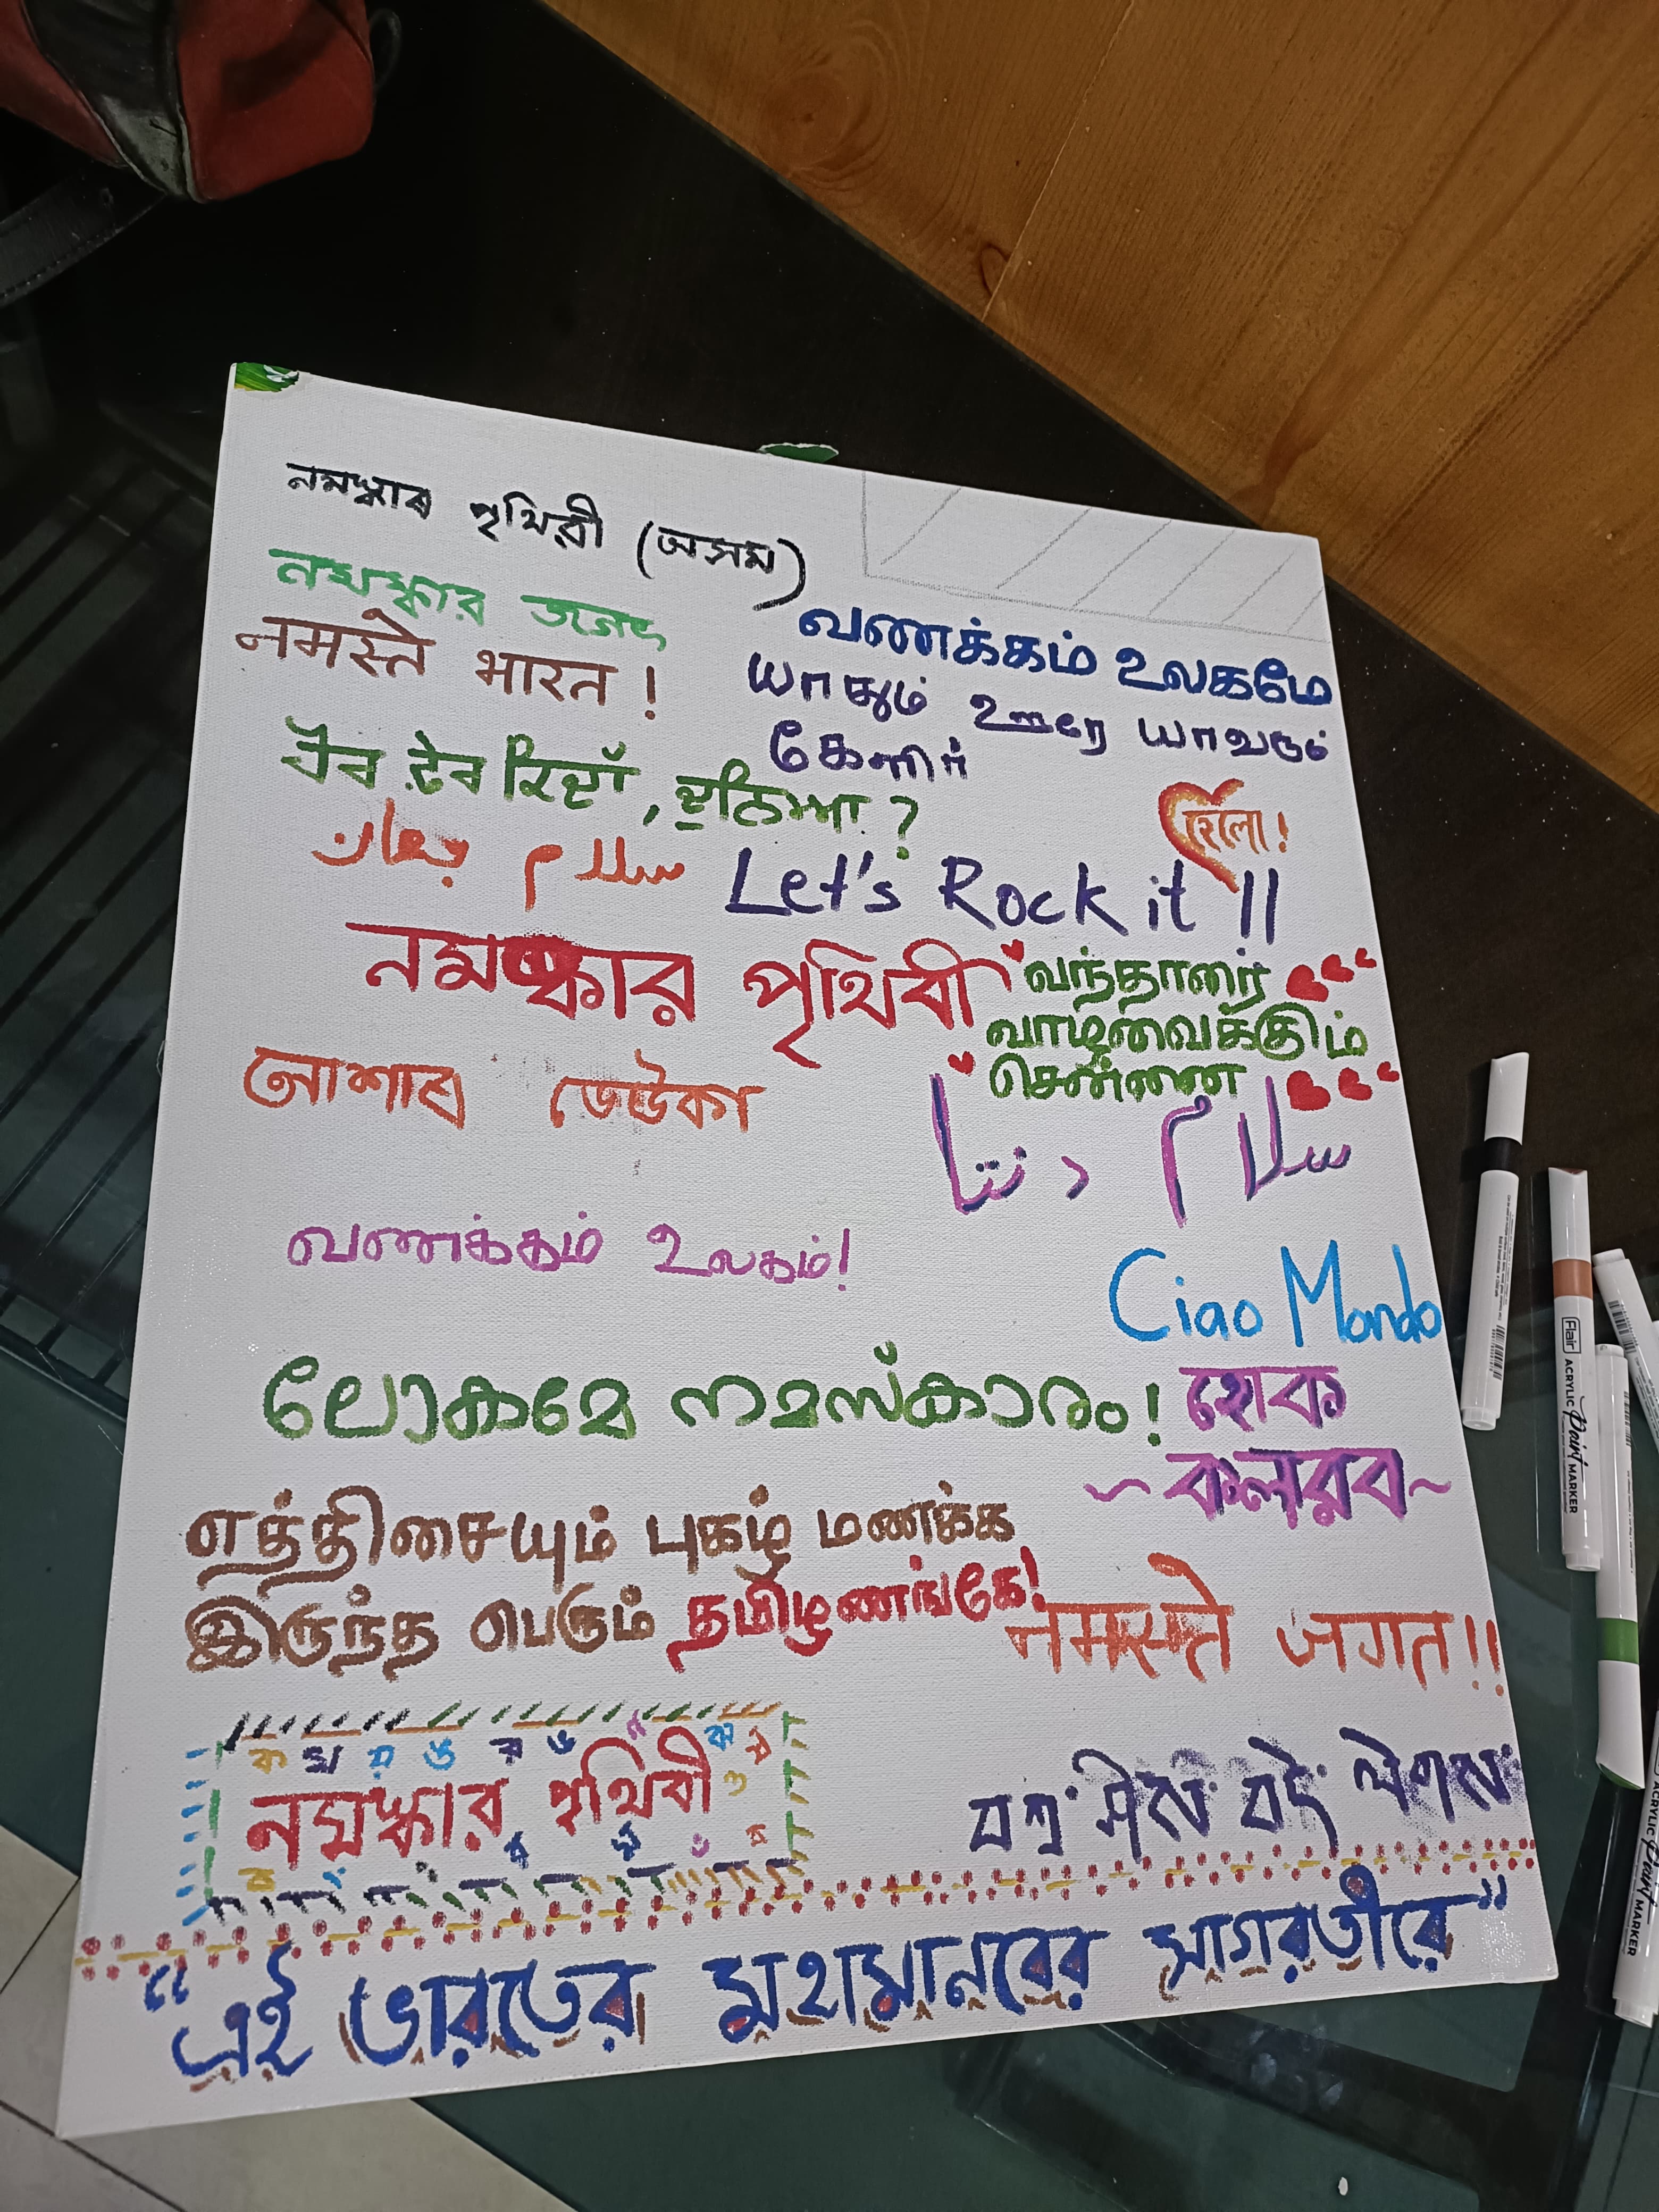 নমস্কাৰ পৃথিৱী (অসম)
নমস্কার জগৎ
नमस्ते भारत !
வணக்கம் உலகமே
யாதும் ஊரே யாவரும்
கேளிர்
ਦੁਨਿਆ ?
হেলো !
سلام بھارت
Let's Rock it !!
নমস্কার পৃথিবী
வந்தாரை
வாழவைக்கும்
சென்னை
سلام دنیا
வணக்கம் உலகம்!
Ciao Mondo
ലോകമേ നമസ്കാരം!
হোক
~ কলরব ~
எத்திசையும் புகழ் மணக்க
இருந்த பெரும் தமிழணங்கே!
नमस्ते जगत !!
ক ম য় ঙ র ঙ
নমস্কার পৃথিবী
"এই ভারতের মহামানবের সাগরতীরে"
Flair
ACRYLIC Paint MARKER